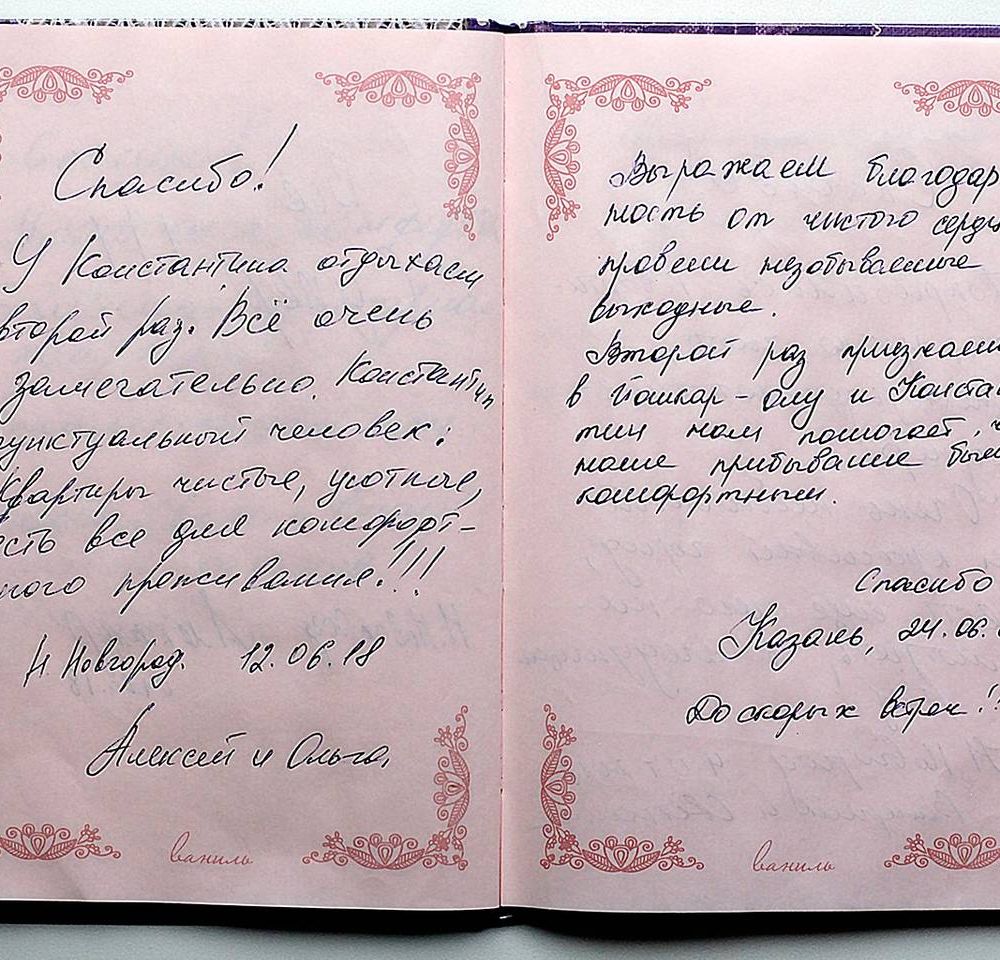 Спасибо!
У Константина отдыхаем
второй раз. Всё очень
замечательно. Константин
пунктуальный человек:
Квартиры чистые, уютные,
есть все для комфорт-
ного проживания!!!
Н. Новгород. 12.06.18
Алексей и Ольга.
ваниль
Выражаем благодар
ность от чистого сердц
провели незабываемые
выходные.
Второй раз приезжаем
в Йошкар-олу и Конста
тин нам помогает, ч
наше прибывание был
комфортным.
Спасибо
Казань, 24.06.
До скорых встреч!!
ваниль